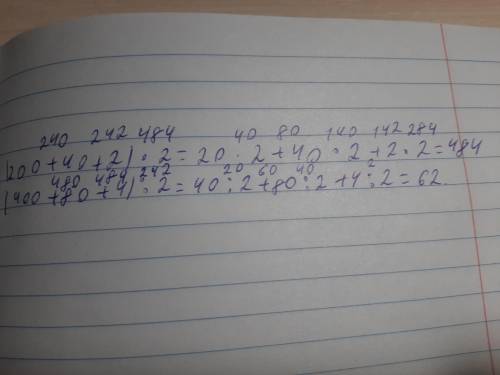 240 242 484 40 80 140 142 284
(200+40+2)·2=20·2+40·2+2·2=484
480 484 242 20 60 40 2
(400+80+4):2=40:2+80:2+4:2=62.